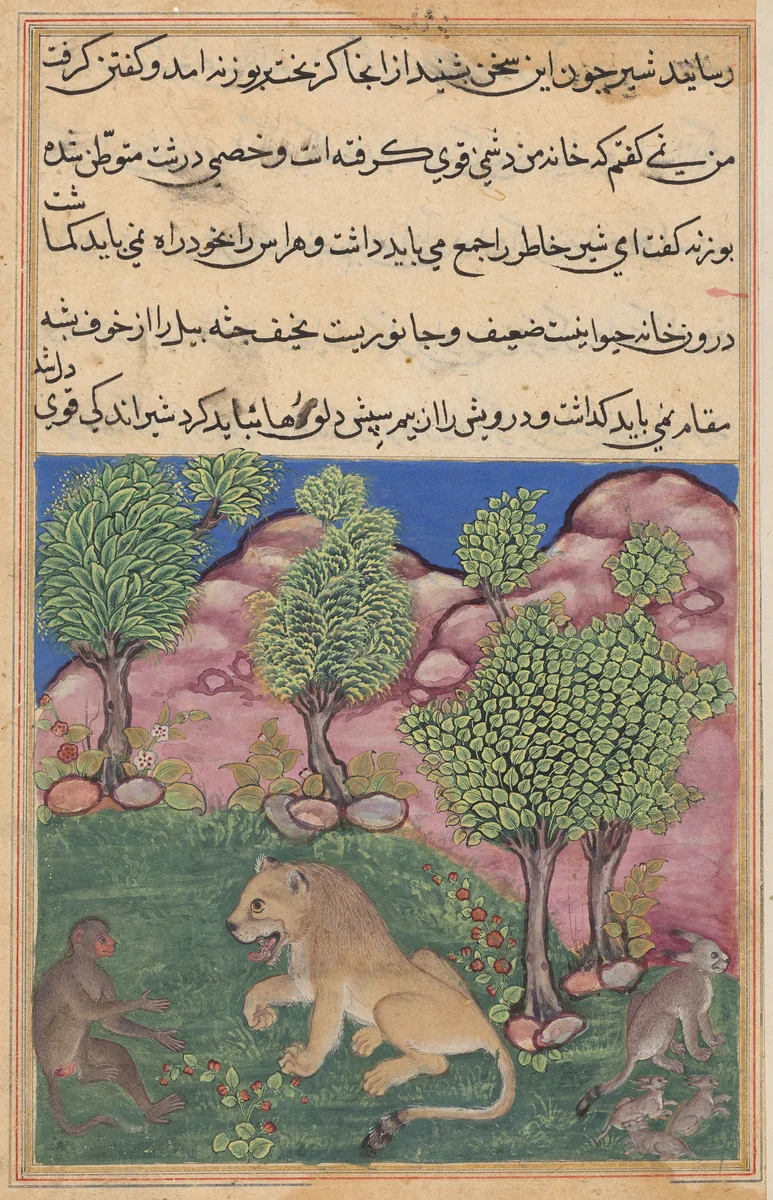 رسانید شیر چون این سخن بشنید از انجا کریخت بر بوزنه امد و کفتن کرفت
من نمی کفتم که خانه من دشمنی قوی کرفته است و خصمی درشت متوطّن شده
بوزنه کفت ای شیر خاطر را جمع می باید داشت و هراس را بخود راه نمی باید کماشت
درون خانه حیوانیست ضعیف و جانوریست نحیف جثه پیل را از خوف پشه
مقام نمی باید کذاشت و درویش را از بیم سپش دلق رها نباید کرد شیر اندکی قوی دل شد